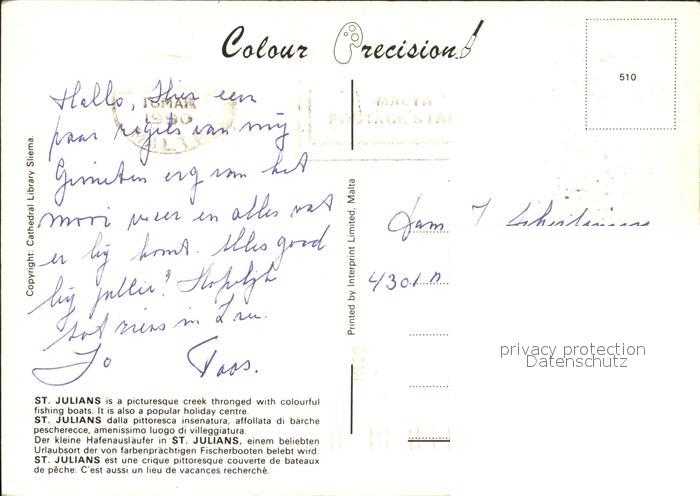 Colour Precision
510
Hallo, Hier een
paar regels van mij
Genieten erg van het
mooi weer en alles wat
er bij komt. Alles good
bij jullie? Hopelijk
tot ziens in
Jo Toos.
18 MAR
1990
MALTA
POSTAGE STA
Copyright: Cathedral Library Sliema.
Printed by Interprint Limited, Malta
Fam. J
4301
privacy protection
Datenschutz
ST. JULIANS is a picturesque creek thronged with colourful
fishing boats. It is also a popular holiday centre.
ST. JULIANS dalla pittoresca insenatura, affollata di barche
pescherecce, amenissimo luogo di villeggiatura.
Der kleine Hafenausläufer in ST. JULIANS, einem beliebten
Urlaubsort der von farbenprächtigen Fischerbooten belebt wird.
ST. JULIANS est une crique pittoresque couverte de bateaux
de pêche. C'est aussi un lieu de vacances recherché.